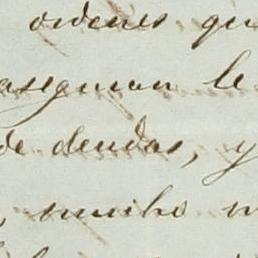 ordenes qu
aseguran le
de deudas, y
mucho m